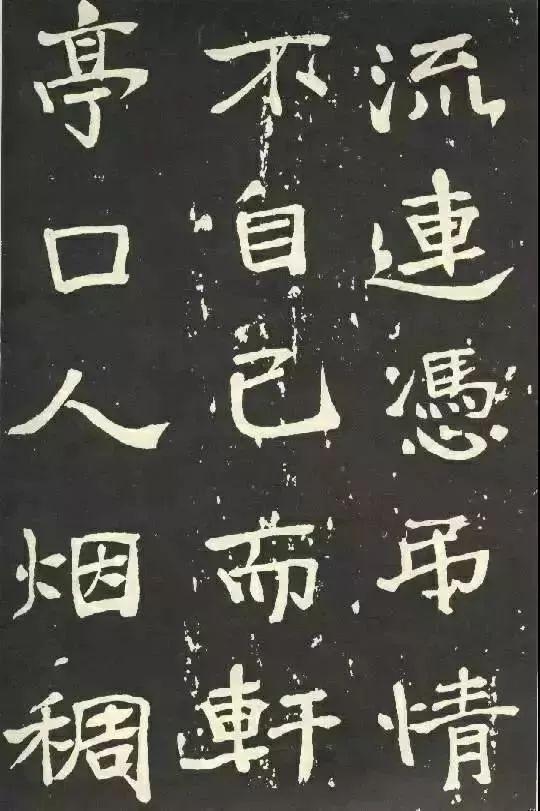 流連憑弔情
不自已而軒
亭口人烟稠